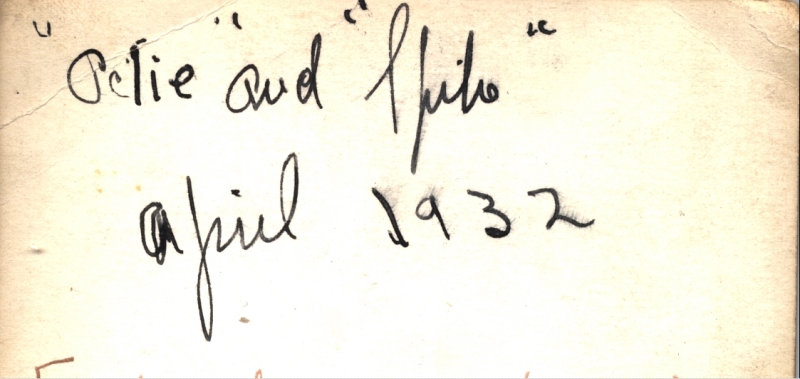 "Petie" and "Spike"
april 1932